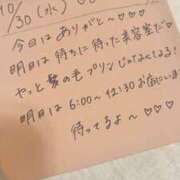 10/30(水)
今日は ありがと〜♡♡♡
明日は 待ちに待った美容室だ♡
やっと髪の毛プリンじゃなくなる!
明日は 6:00〜12:30 お店にいます
待ってるよ〜♡♡♡